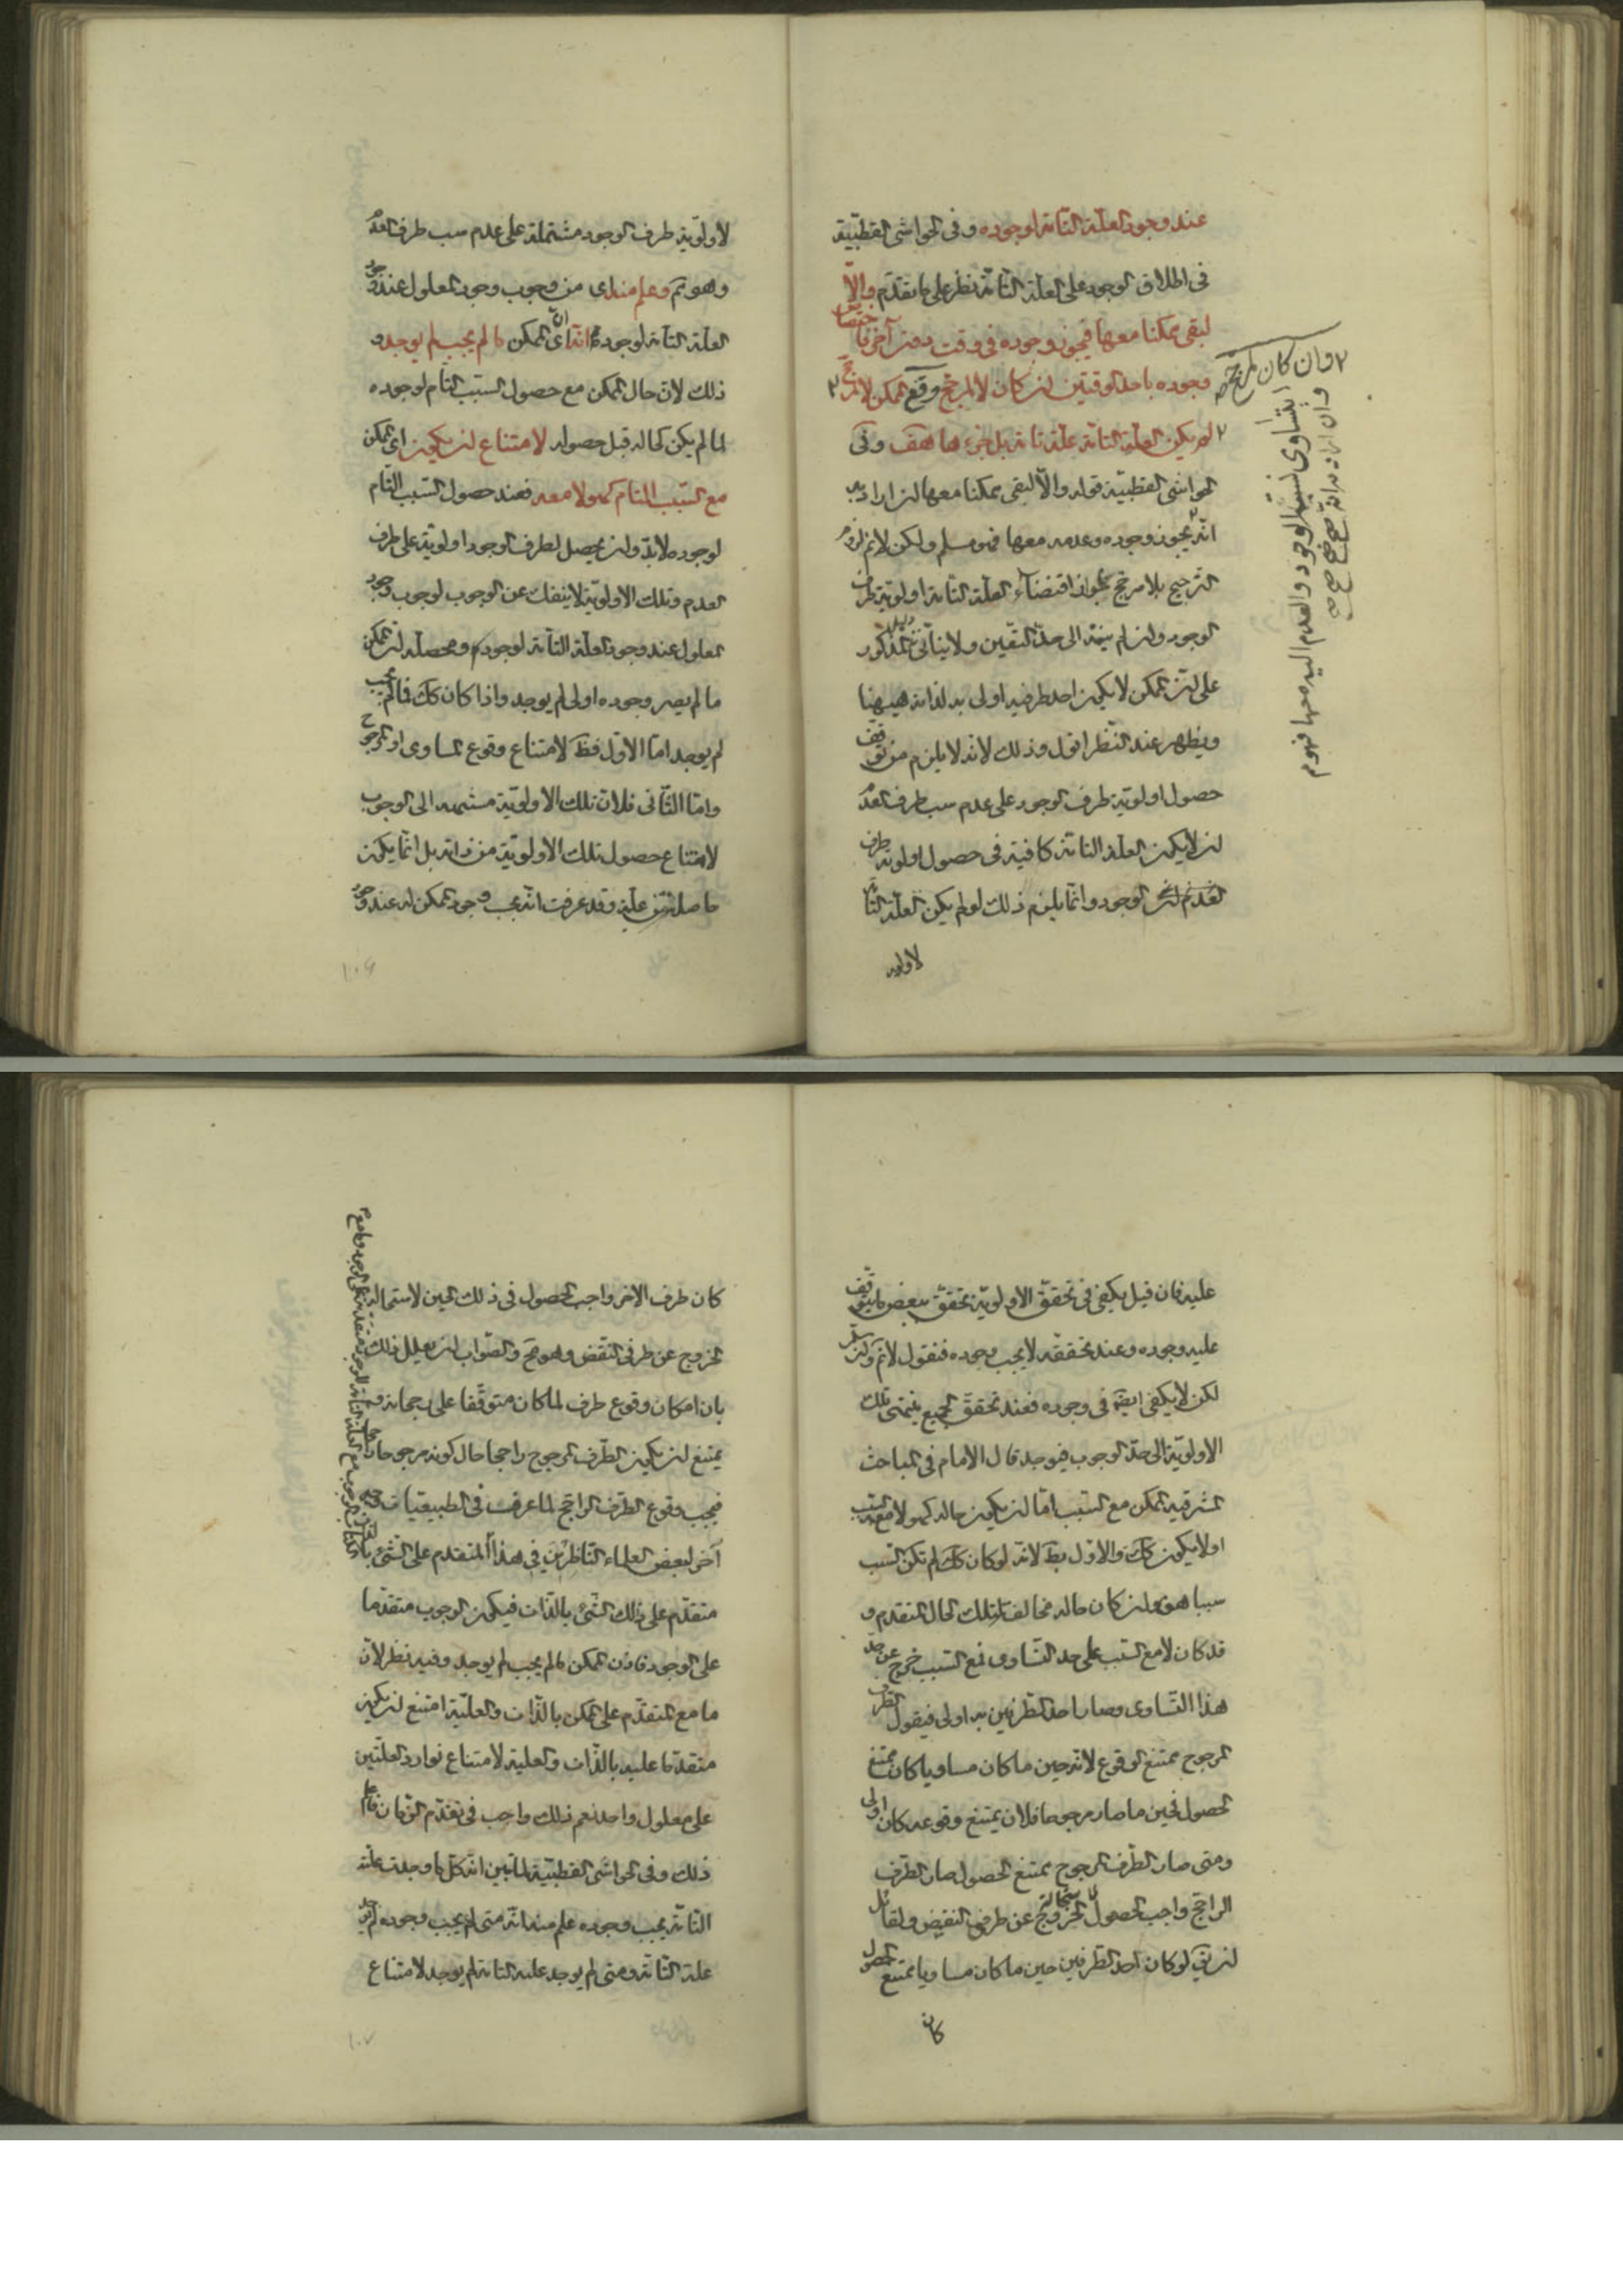 عند وجود العلة التامة لوجوده وفى الحواشى القطبية
فى اطلاق الوجود على العلة التامة نظر على ما تقدم والا
لبقى ممكنا معها فيجوز وجوده فى وقت دون آخر فاختصاص
وجوده باحد الوقتين ان كان لا لمرجح وقع الممكن لا لمرجح
لم يكن العلة التامة علة تامة بل جزءها هف وفى
الحواشى القطبية قوله والا لبقى ممكنا معها ان اراد به
انه يجوز وجوده وعدمه معها فهو مسلم ولكن لانم لزوم
الترجيح بلا مرجح لجواز اقتضاء العلة التامة اولوية طرف
الوجود وان لم ينته الى حد التعين ولا يتأتى المذكور
على ان الممكن لا يكون احد طرفيه اولى به لذاته هيهنا
ويظهر عند النظر اقول وذلك لانه لا يلزم من توقف
حصول اولوية طرف الوجود على عدم سبب طرف العدم
ان لا يكون العلة التامة كافية فى حصول اولوية طرف
الوجود وانما يلزم ذلك لو لم يكن العلة التامة
لاولوية
وان كان لمرجح
ايتساوى نسبة الوجود والعدم اليه معها فهو م
وان اراد به انه
صح صح صح
لاولوية طرف الوجود مشتملة على عدم سبب طرف العدم
وهو مم وعلم منه اى من وجوب وجود المعلول عند وجود
العلة التامة لوجوده انه اى ان الممكن ما لم يجب لم يوجد و
ذلك لان حال الممكن مع حصول السبب التام لوجوده
لما لم يكن كحاله قبل حصوله لامتناع ان يكون اى الممكن
مع السبب التام كهو لا معه فعند حصول السبب التام
لوجوده لابد وان يحصل لطرف الوجود اولوية على طرف
العدم وتلك الاولوية لا ينفك عن الوجوب لوجوب وجود
المعلول عند وجود العلة التامة لوجوده ومحصله ان الممكن
ما لم يصر وجوده اولى لم يوجد واذا كان كك فما لم يجب
لم يوجد اما الاول فظ لامتناع وقوع المساوى او المرجوح
واما الثانى فلان تلك الاولوية منتهية الى الوجوب
لامتناع حصول تلك الاولوية من ذاته بل انما يكون
حاصلة من علته وقد عرفت انه يجب وجود الممكن له عند وجود
١٠٦
عليه فان قيل يكفى فى تحقق الاولوية تحقق بعض ما يتوقف
عليه وجوده وعند تحققه لا يجب وجوده فنقول لانم ولئن سلم
لكن لا يكفى ايضا فى وجوده فعند تحقق الجميع ينتهى تلك
الاولوية الى حد الوجوب فيوجد قال الامام فى المباحث
المشرقية الممكن مع السبب اما ان يكون حاله كهو لا مع السبب
او لا يكون كك والاول بط لانه لو كان كك لم تكن السبب
سببا هف وان كان حاله مخالفا لتلك الحال المتقدم و
قد كان لا مع السبب على حد التساوى فمع السبب خرج عن حد
هذا التساوى وصار احد الطرفين به اولى فيقول الطرف
المرجوح ممتنع الوقوع لانه حين ما كان مساويا كان ممتنع
الحصول فحين ما صار مرجوحا فلان يمتنع وقوعه كان اولى
ومتى صار الطرف المرجوح ممتنع الحصول صار الطرف
الراجح واجب الحصول لاستحالة الخروج عن طرفى النقيض ولقائل
ان يق لو كان احد الطرفين حين ما كان مساويا ممتنع الحصول
كان
كان طرف الاخر واجب الحصول فى ذلك الحين لاستحالة
الخروج عن طرفى النقض وهو مح والصواب ان يعلل ذلك
بان امكان وقوع طرف لما كان متوقفا على رجحانه و
يمتنع ان يكون الطرف المرجوح راجحا حال كونه مرجوحا
فيجب وقوع الطرف الراجح لما عرفت فى الطبيعيات وجه
آخر لبعض العلماء الناظرين فى هذا المتقدم على الشئ
متقدم على ذلك الشئ بالذات فيكون الوجوب متقدما
على الوجود فاذن الممكن ما لم يجب لم يوجد وفيه نظر لان
ما مع المتقدم على الممكن بالذات والعلية امتنع ان يكون
متقدما عليه بالذات والعلية لامتناع توارد العلتين
على معلول واحد نعم ذلك واجب فى تقدم الزمان فاعلم
ذلك وفى الحواشى القطبية لما تبين ان كل ما وجدت علته
التامة يجب وجوده علم منه انه متى لم يجب وجوده لم يوجد
علته التامة ومتى لم يوجد علته التامة لم يوجد لامتناع
١٠٧